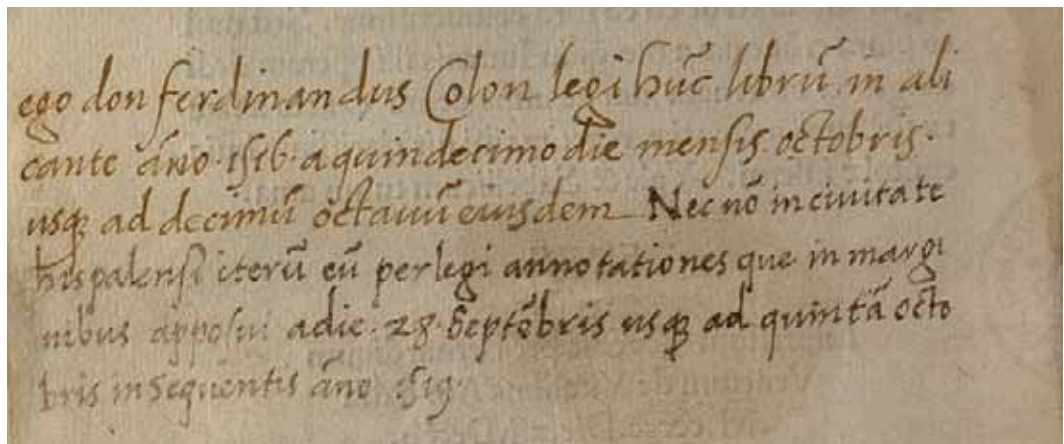 ego don ferdinandus Colon legi hūc librū in ali
cante āno ·1516· a quindecimo die mensis octobris·
usq̄ ad decimū octauū eiusdem Nec nō in ciuitate
hispalensi iterū eū perlegi annotationes que in margi
nibus apposui a die ·28· Septēbris usq̄ ad quintā octo
bris insequentis āno 1519·